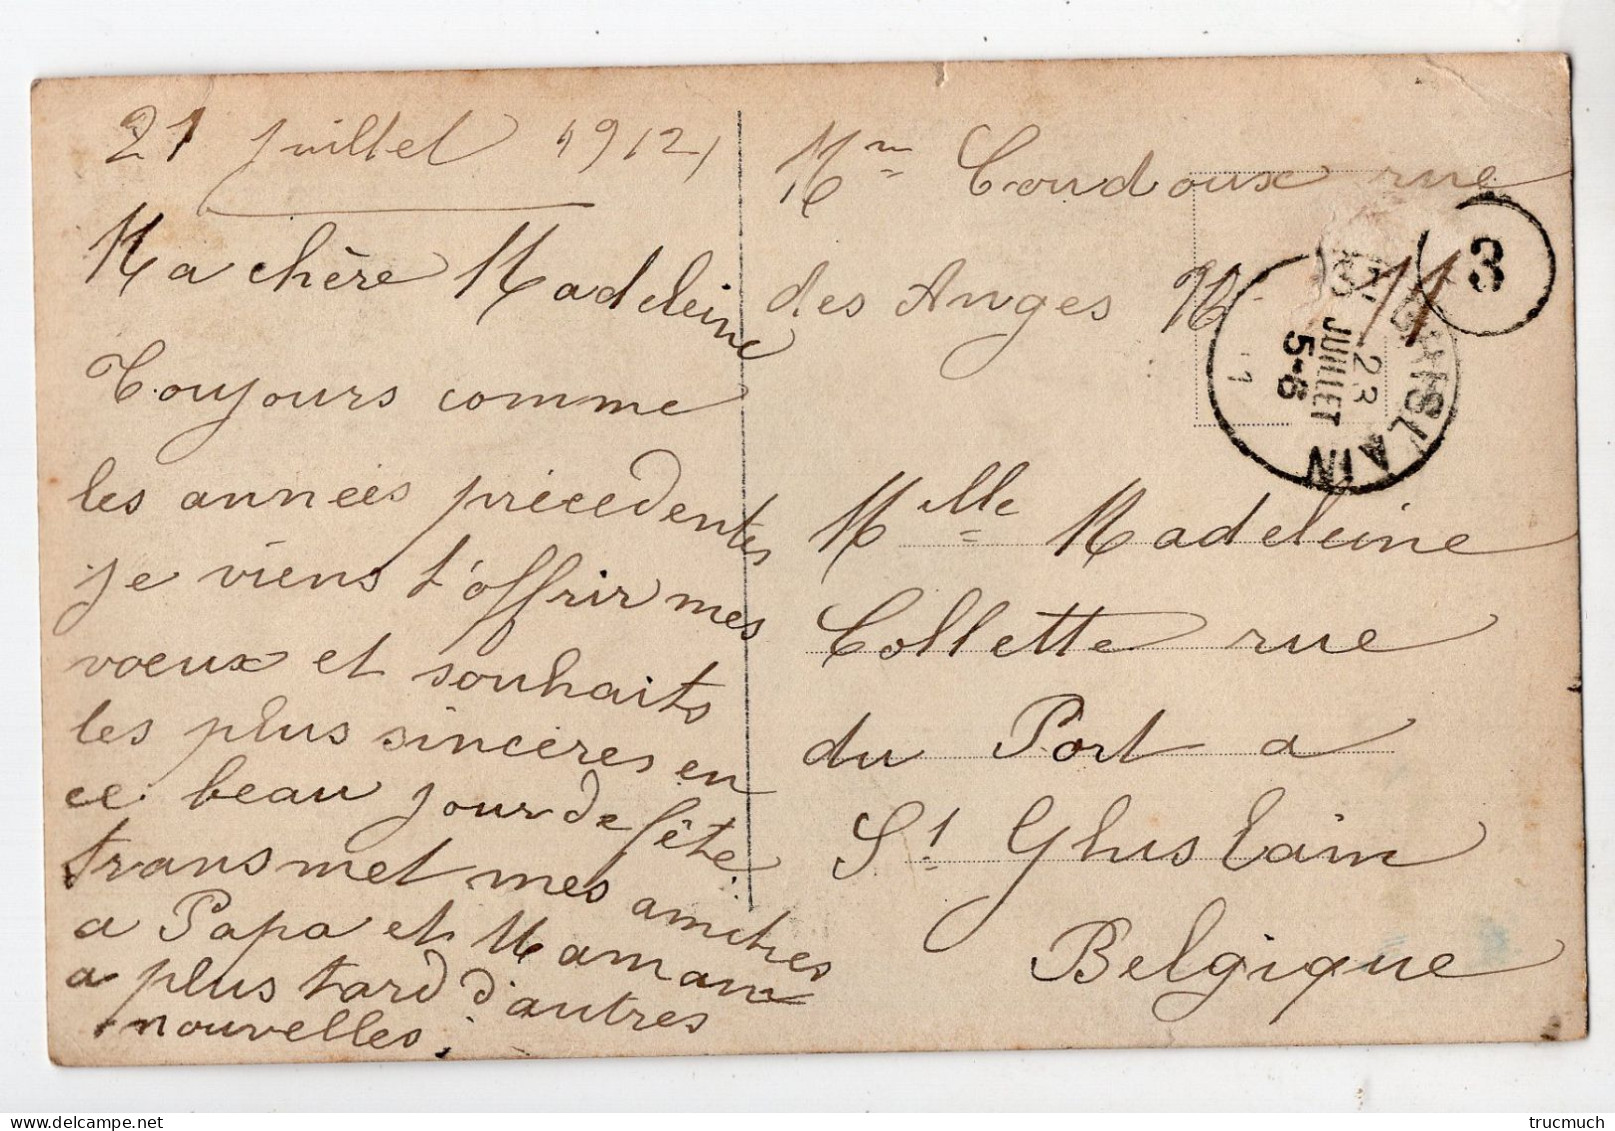 21 Juillet 1912,
Ma chère Madeleine
Toujours comme
les années précédentes
je viens t'offrir mes
voeux et souhaits
les plus sincères en
ce beau jour de fête
transmet mes amitiés
a Papa et Maman
a plus tard d'autres
nouvelles.
Mᵐ Coudoux rue
des Anges N 11
Mˡˡᵉ Madeleine
Collette rue
du Port a
Sᵗ Ghuslain
Belgique
GHISLAIN
23
JUILLET
5-6
3
trucmuch